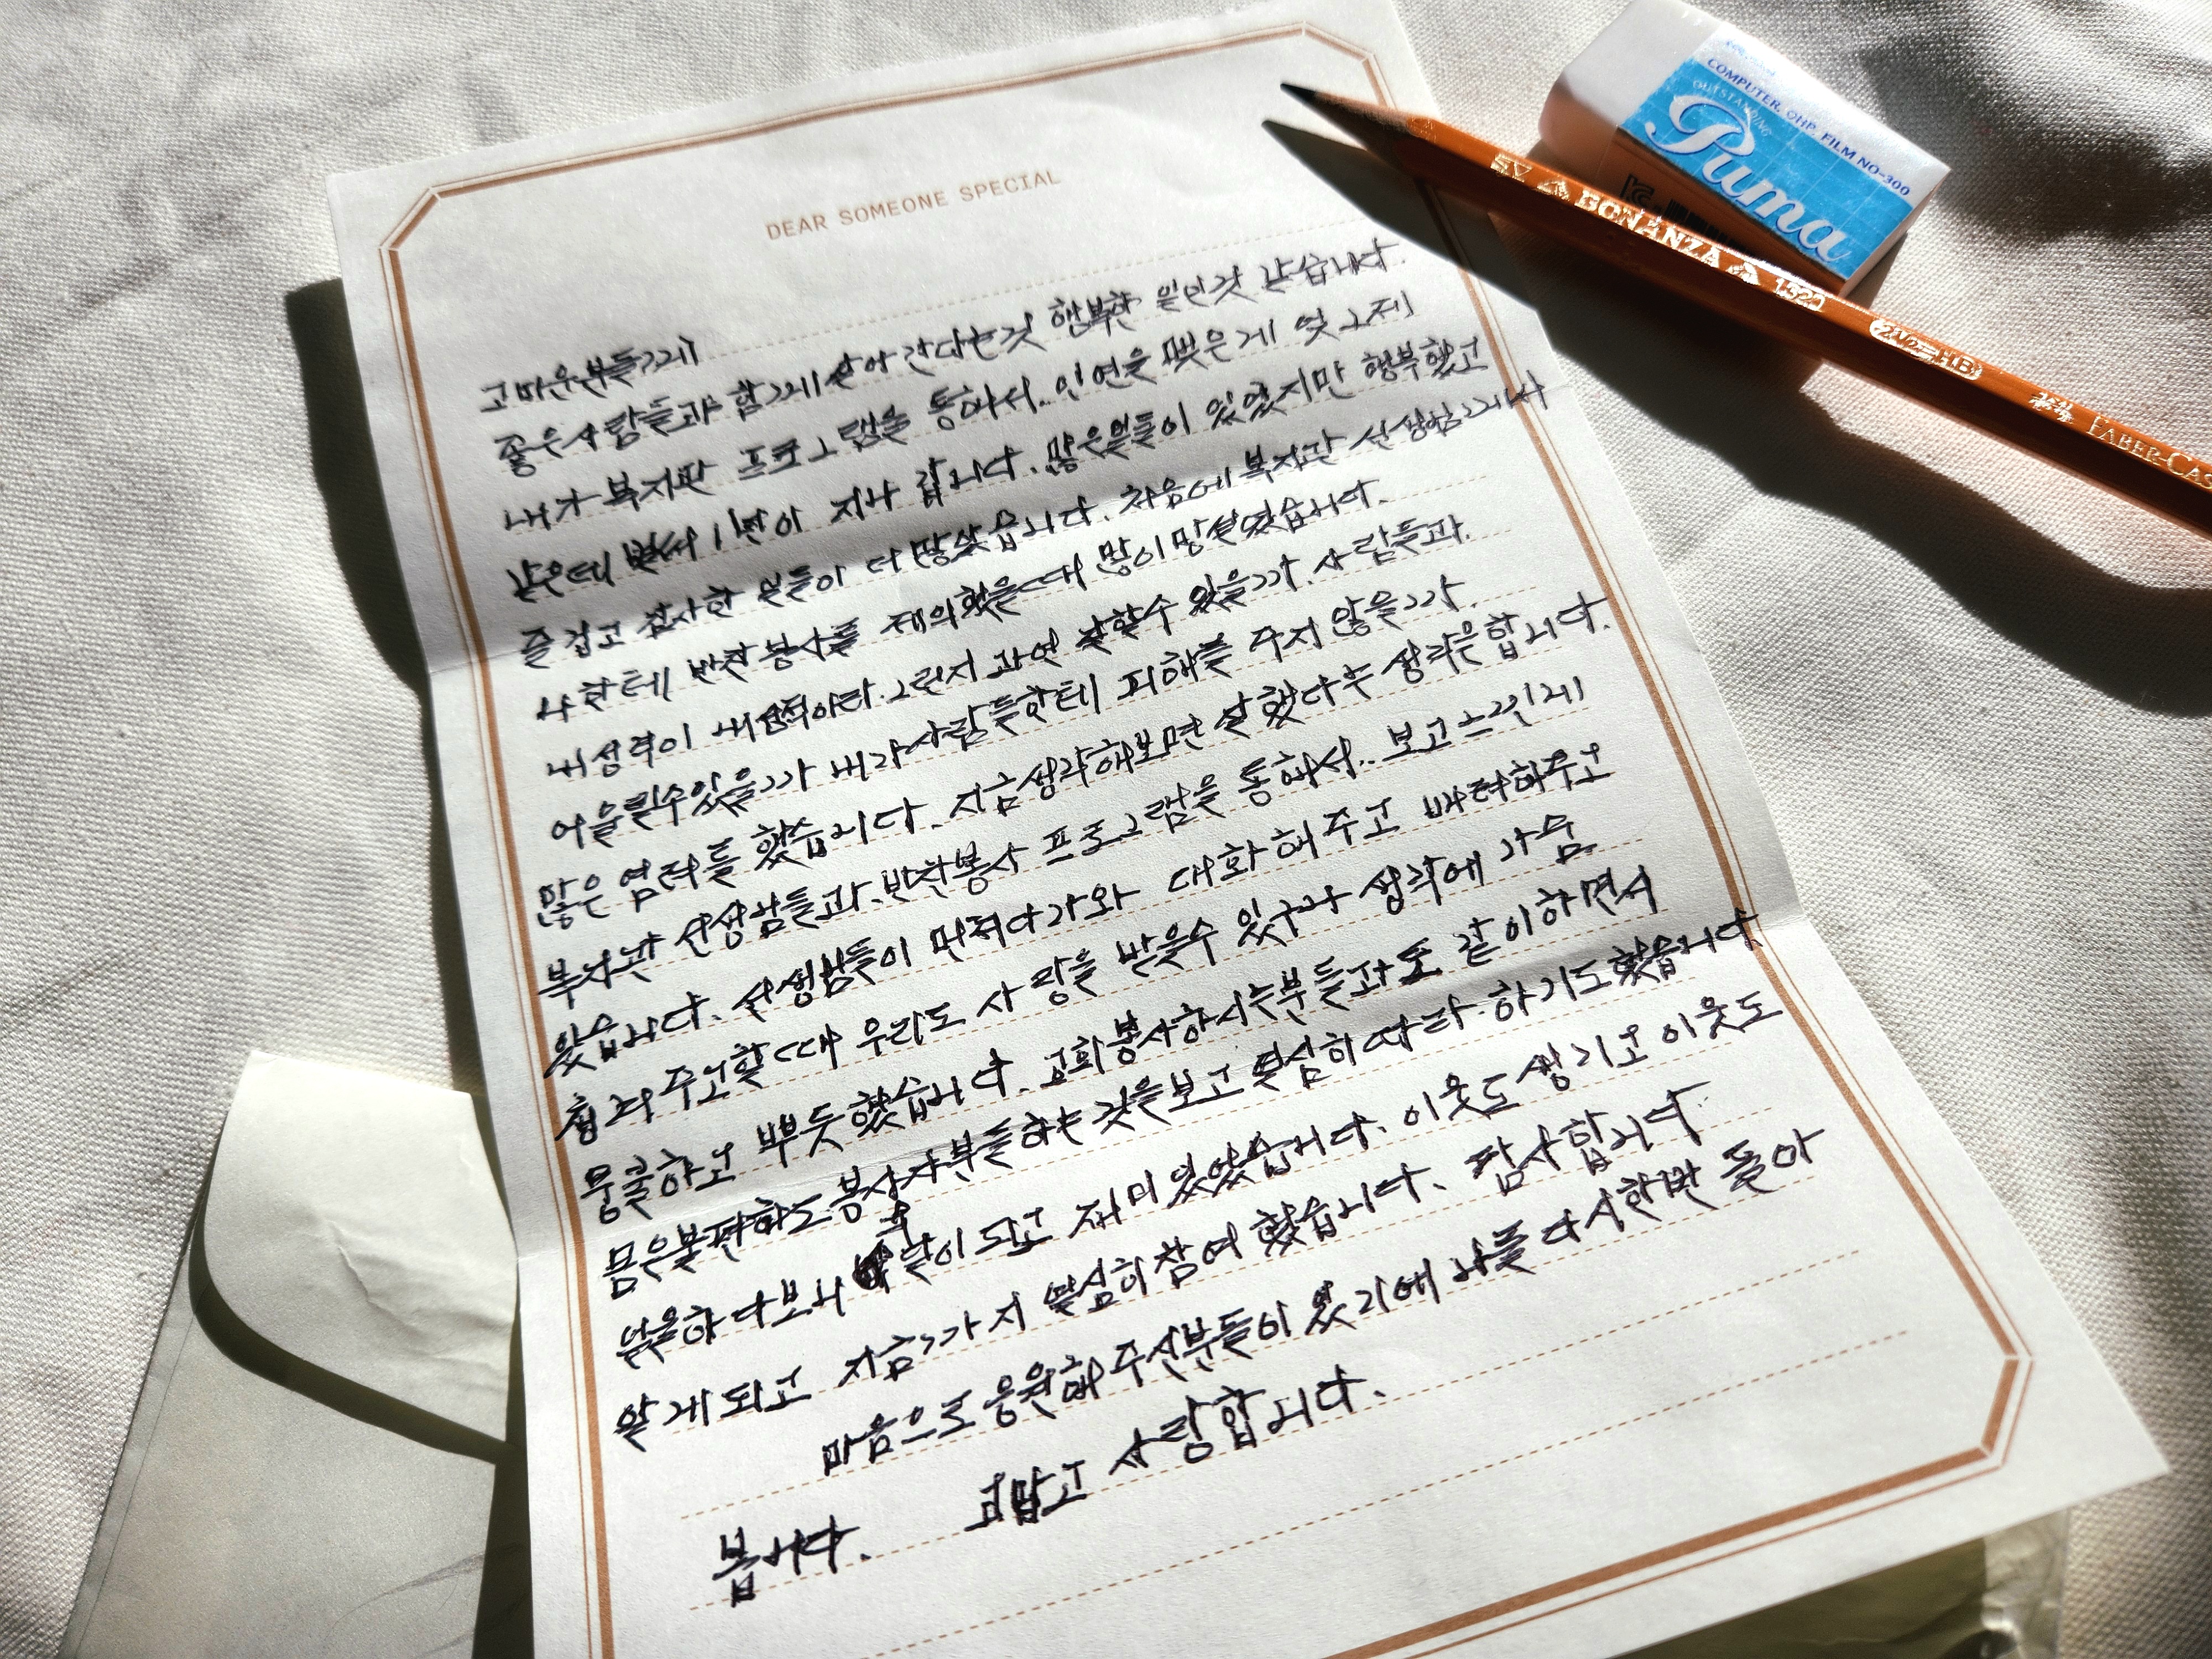 DEAR SOMEONE SPECIAL
고마운분들께
좋은사람들과 함께 살아 간다는것 행복한 일인것 같습니다.
내가 복지관 프로그램을 통해서.. 인연을 맺은게 엊그제
같은데 벌써 1년이 지나 갑니다. 많은일들이 있었지만 행복했고
즐겁고 감사한 일들이 더 많았습니다. 처음에 복지관 선생님께서
나한테 반찬봉사를 제의했을때 많이망설였습니다.
내성격이 내성적이라. 그런지 과연 잘할수 있을까. 사람들과.
어울릴수있을까 내가사람들한테 피해를 주지 않을까.
많은 염려를 했습니다. 지금생각해보면 잘했다는 생각을합니다.
복지관 선생님들과.반찬봉사 프로그램을 통해서.. 보고느낀게
있습니다. 선생님들이 먼저다가와 대화해주고 배려해주고
챙겨주고할때 우리도 사랑을 받을수 있구나 생각에 가슴
뭉쿨하고 뿌듯했습니다. 교회봉사하시는분들과도 같이하면서
몸은불편하도봉사자분들하는 것을보고 열심히따라 하기도했습니다
일을하다보니 활이 되고 재미있었습니다. 이웃도생기고 이웃도
알게되고 지금까지 열심히참여했습니다. 감사합니다
마음으로응원해주신분들이있기에 나를 다시한번 돌아
봅니다. 고맙고 사랑합니다.
COMPUTER, OHP, FILM NO-300
OUTSTANDING
Puma
SV BONANZA 1320 2½=HB FABER-CAS